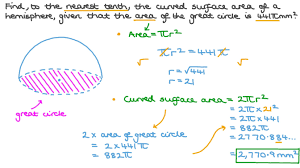 Find, to the nearest tenth, the curved surface area of a
hemisphere, given that the area of the great circle is 441πmm².
• Area = πr²
πr² = 441π
√ √
r = √441
r = 21
great circle
• Curved surface area = 2πr²
= 2π × 21²
= 2π × 441
= 882π
= 2770.884...
= 2,770.9 mm²
2 × area of great circle
= 2 × 441π
= 882π